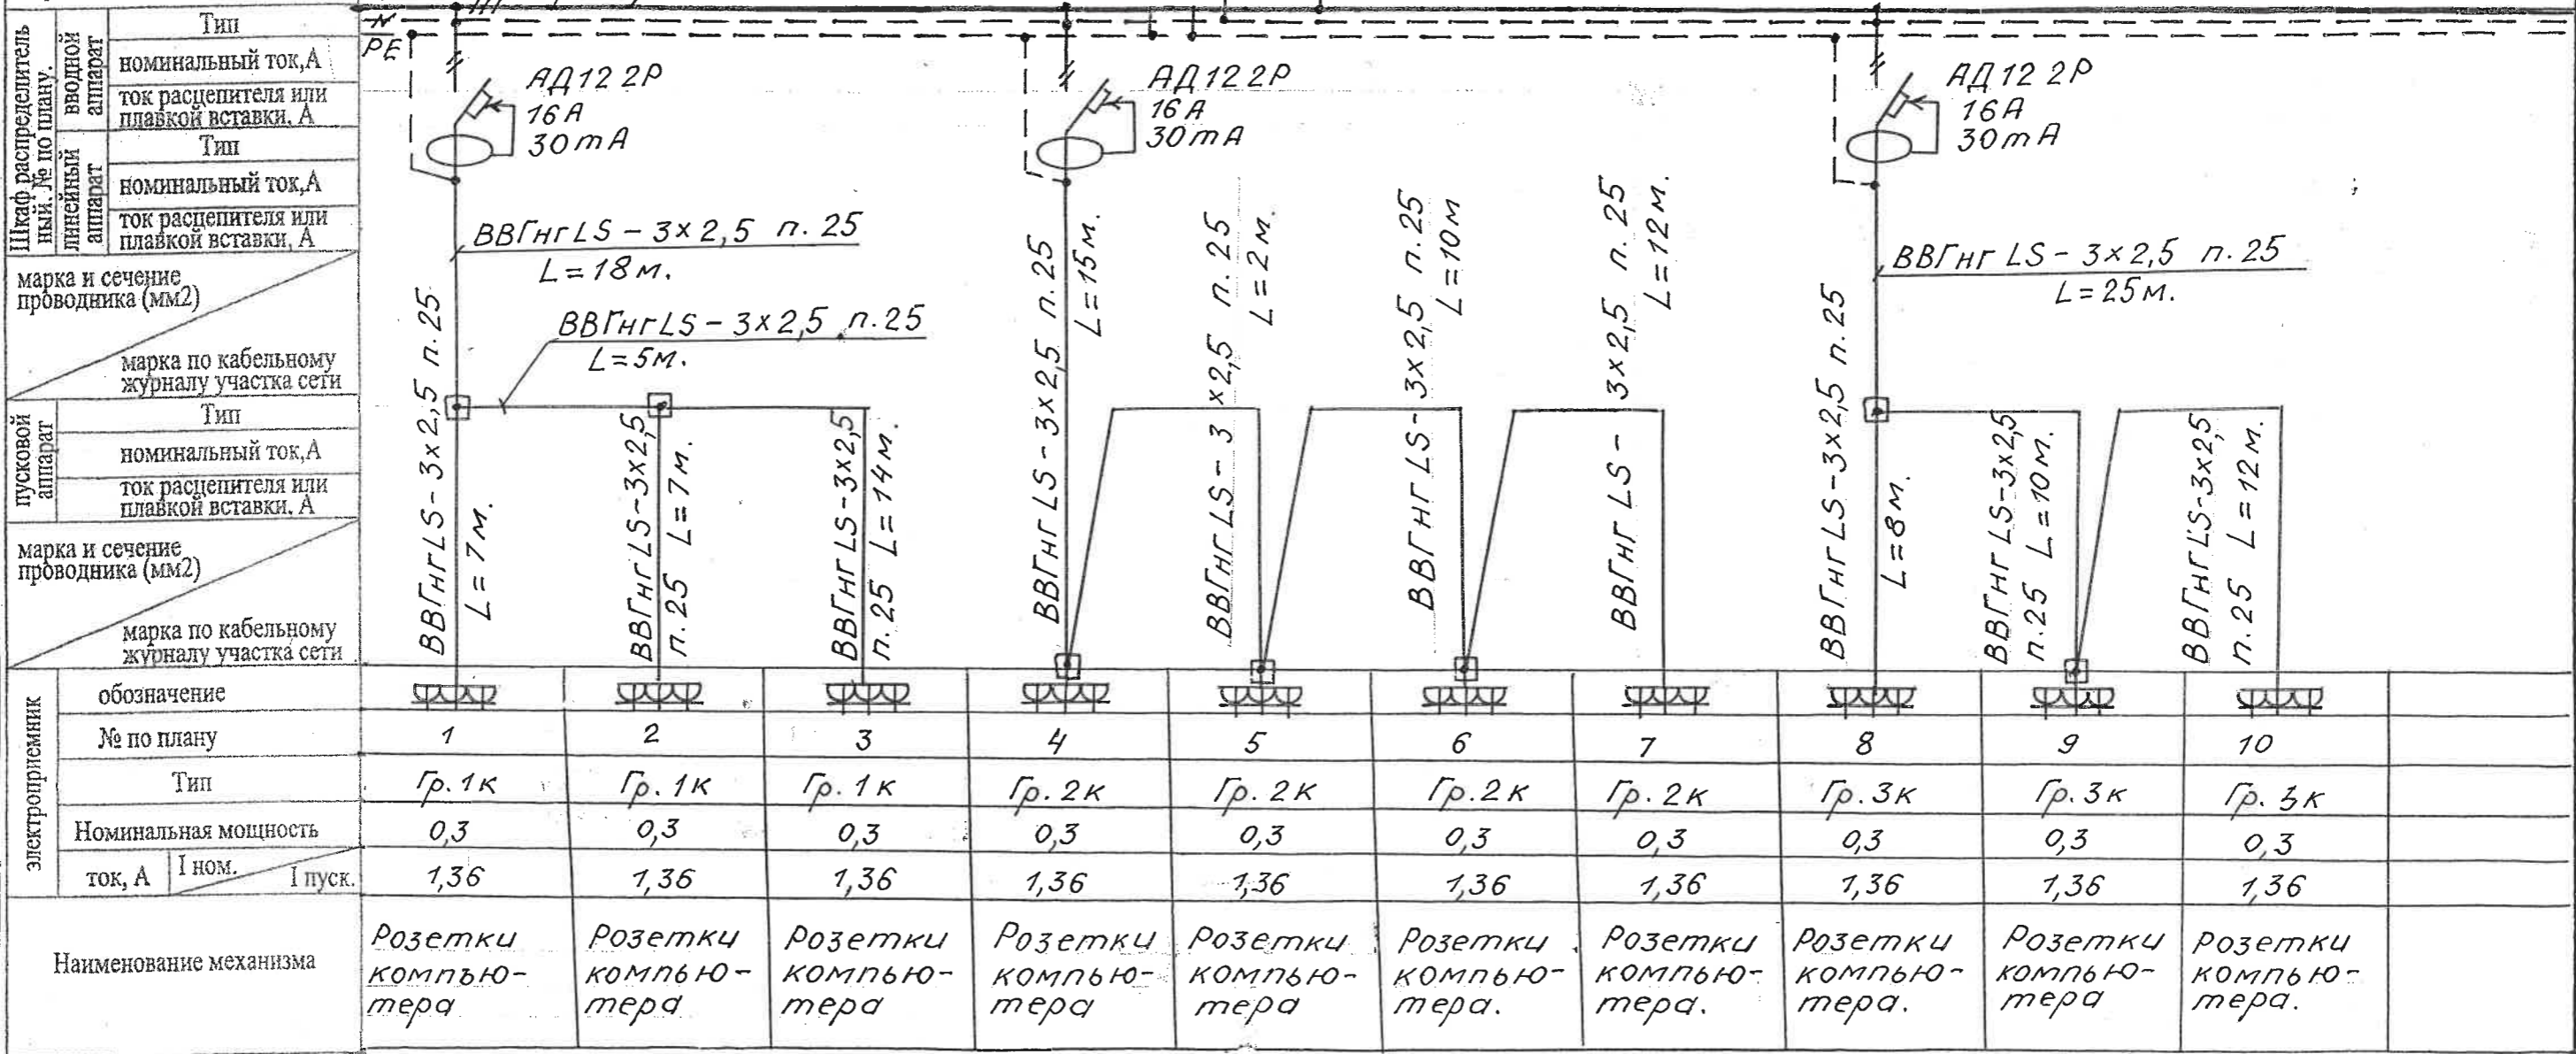 Шкаф распределитель
ный. № по плану.
вводной
аппарат
Тип
номинальный ток,А
ток расцепителя или
плавкой вставки, А
линейный
аппарат
Тип
номинальный ток,А
ток расцепителя или
плавкой вставки, А
марка и сечение
проводника (мм2)
марка по кабельному
журналу участка сети
пусковой
аппарат
Тип
номинальный ток,А
ток расцепителя или
плавкой вставки, А
марка и сечение
проводника (мм2)
марка по кабельному
журналу участка сети
N
PE
АД12 2Р
16А
30mA
АД12 2Р
16А
30mA
АД12 2Р
16А
30mA
ВВГнгLS-3х2,5 п.25
L=18м.
ВВГнгLS-3х2,5 п.25
L=5м.
ВВГнгLS-3х2,5 п.25
L=7м.
ВВГнгLS-3х2,5
п.25 L=7м.
ВВГнгLS-3х2,5
п.25 L=14м.
ВВГнгLS-3х2,5 п.25
L=15м.
ВВГнгLS-3х2,5 п.25
L=2м.
ВВГнгLS-3х2,5 п.25
L=10м
ВВГнгLS-3х2,5 п.25
L=12м.
ВВГнгLS-3х2,5 п.25
L=25м.
ВВГнгLS-3х2,5 п.25
L=8м.
ВВГнгLS-3х2,5
п.25 L=10м.
ВВГнгLS-3х2,5
п.25 L=12м.
электроприемник
обозначение
№ по плану 1 2 3 4 5 6 7 8 9 10
Тип Гр.1к Гр.1к Гр.1к Гр.2к Гр.2к Гр.2к Гр.2к Гр.3к Гр.3к Гр.3к
Номинальная мощность 0,3 0,3 0,3 0,3 0,3 0,3 0,3 0,3 0,3 0,3
ток, А I ном. I пуск. 1,36 1,36 1,36 1,36 1,36 1,36 1,36 1,36 1,36 1,36
Наименование механизма
Розетки
компью-
тера
Розетки
компью-
тера
Розетки
компью-
тера
Розетки
компью-
тера
Розетки
компью-
тера
Розетки
компью-
тера.
Розетки
компью-
тера.
Розетки
компью-
тера.
Розетки
компью-
тера
Розетки
компью-
тера.